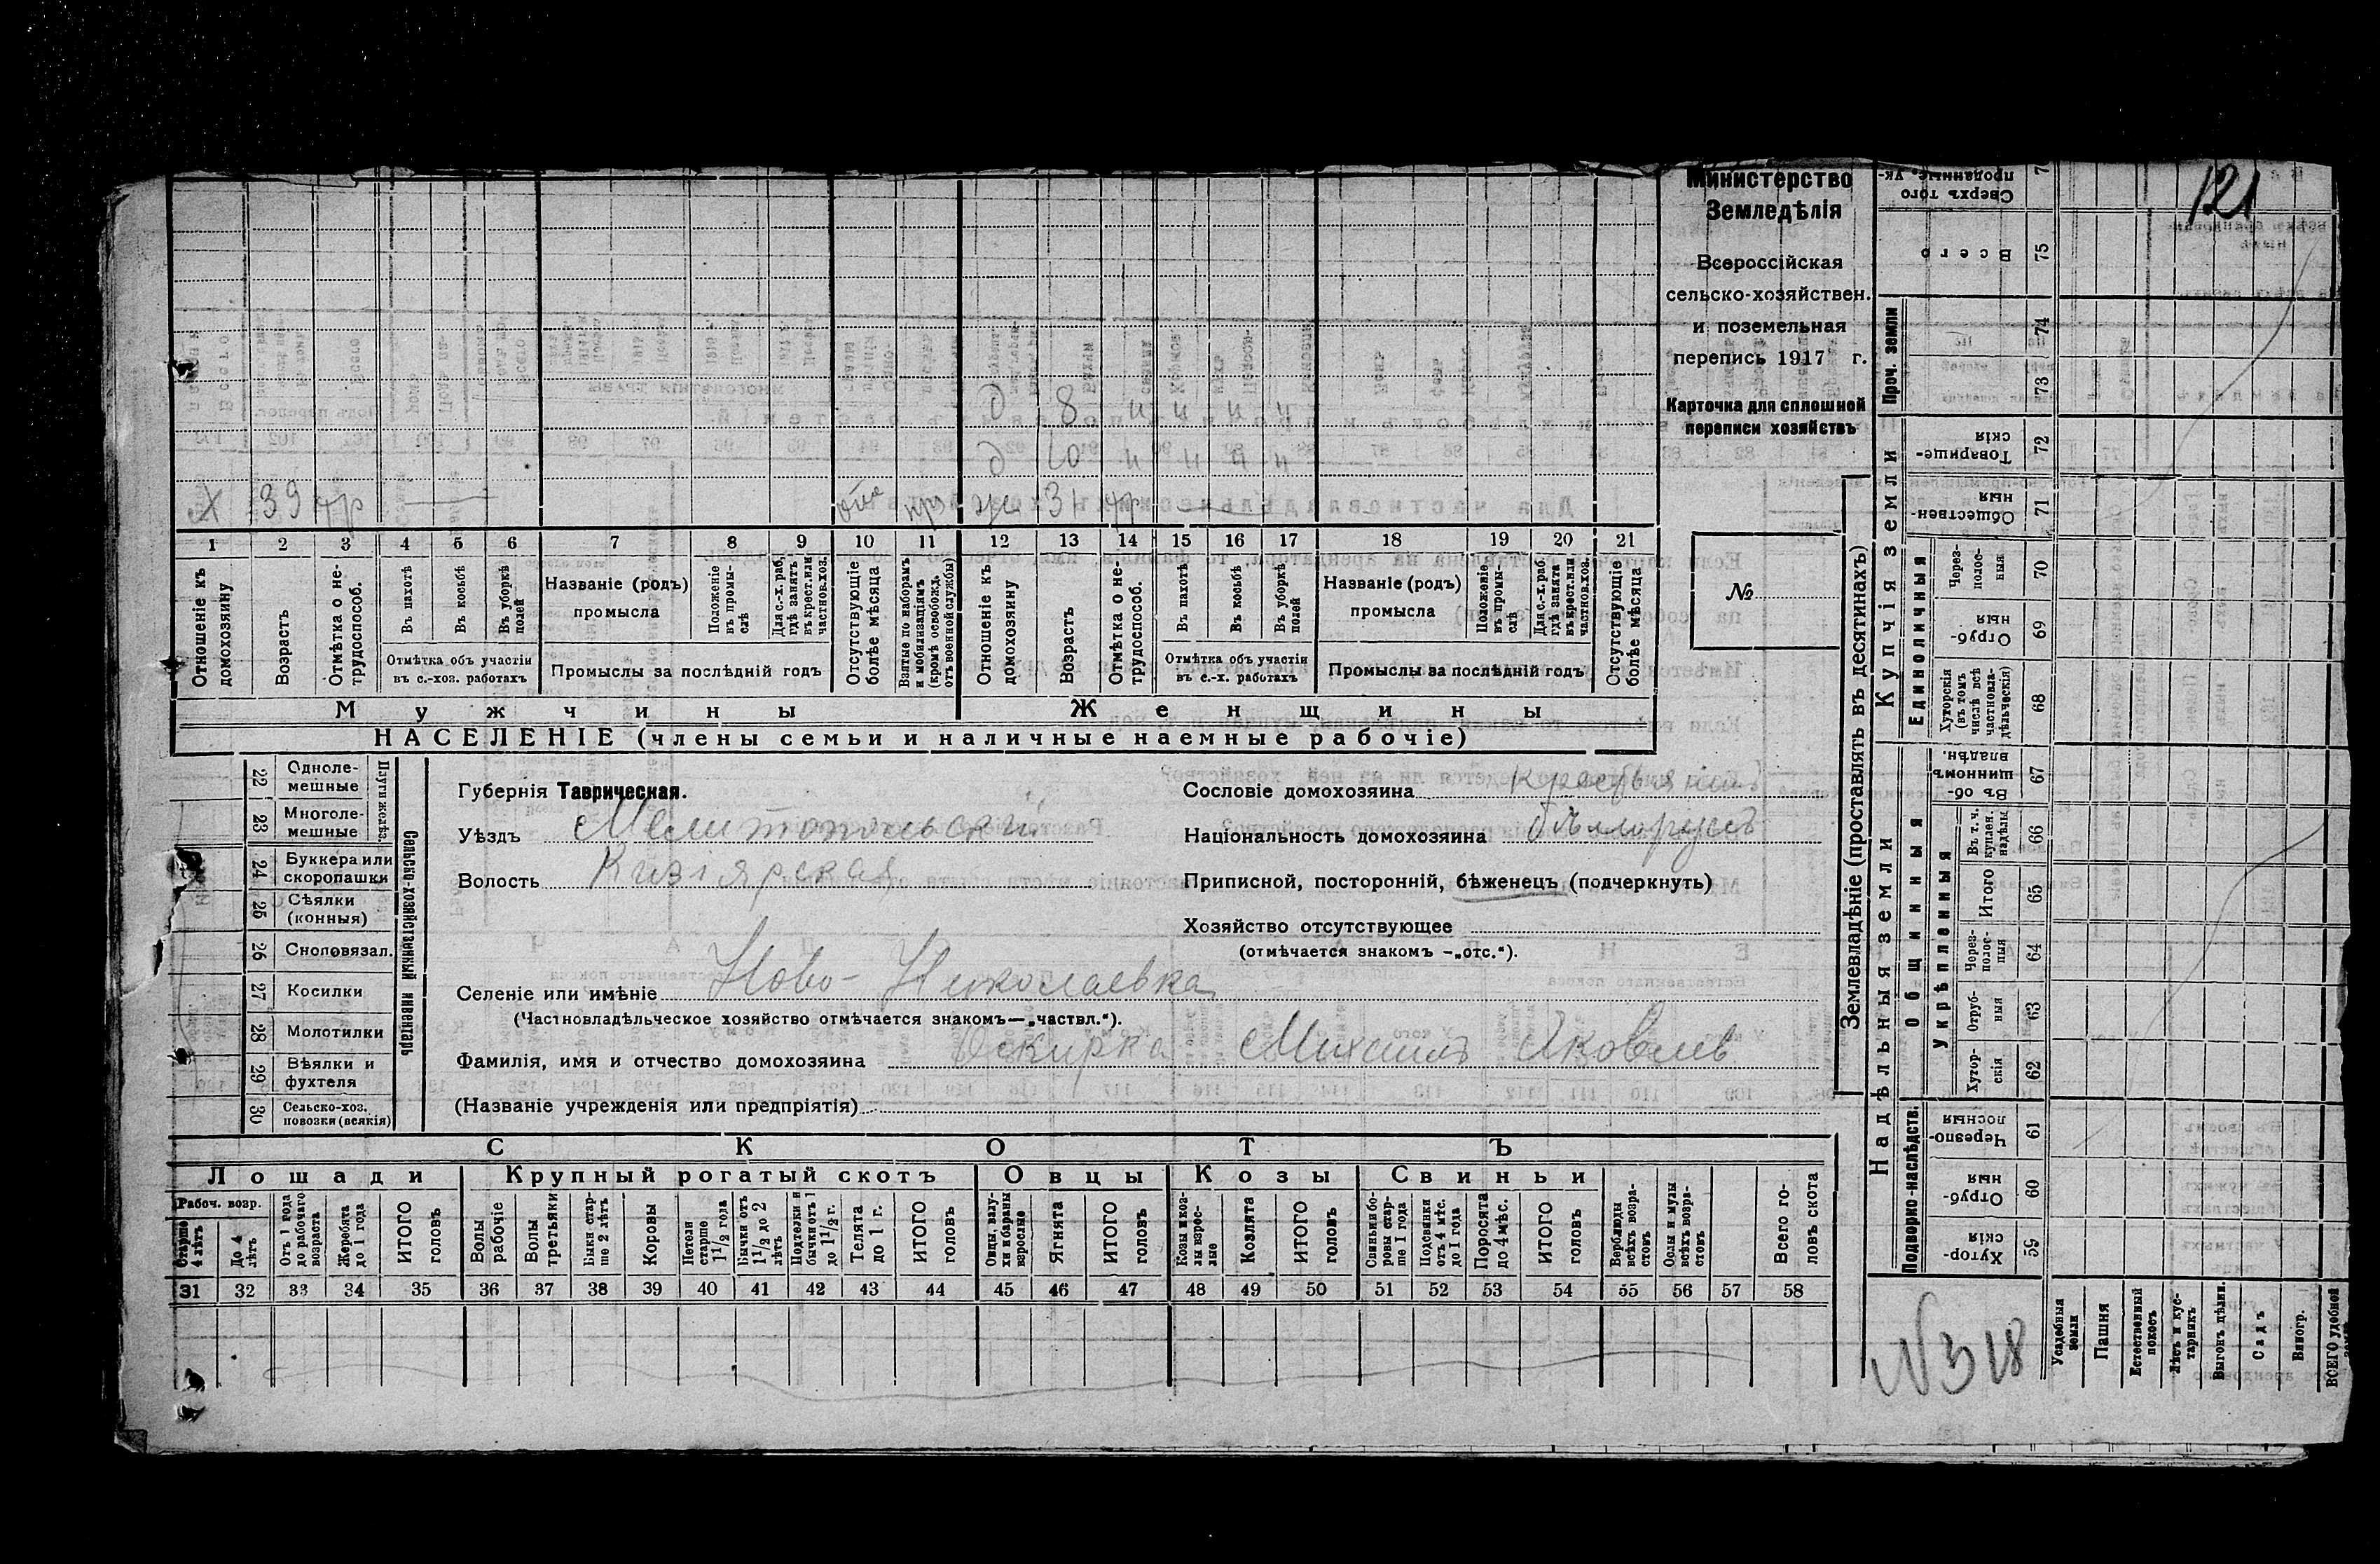 121
Министерство
Земледѣлія
Всероссійская
сельско-хозяйствен.
и поземельная
перепись 1917 г.
Карточка для сплошной
переписи хозяйствъ
№
д 8 н н н н
д 10 н н н н
Х 39 тр отс
ж 31 тр
1 2 3 4 5 6 7 8 9 10 11 12 13 14 15 16 17 18 19 20 21
Отношеніе къ домохозяину
Возрастъ
Отмѣтка о нетрудоспособ.
Въ пахотѣ
Въ косьбѣ
Въ уборкѣ полей
Отмѣтка объ участіи
въ с.-хоз. работахъ
Названіе (родъ)
промысла
Положеніе въ промыслѣ
Для с.-х. раб. гдѣ занятъ въ крест. или частнов. хоз.
Промыслы за послѣдній годъ
Отсутствующіе болѣе мѣсяца
Взятые по наборамъ и мобилизаціямъ (кромѣ освобожд. отъ военной службы)
Отношеніе къ домохозяину
Возрастъ
Отмѣтка о нетрудоспособ.
Въ пахотѣ
Въ косьбѣ
Въ уборкѣ полей
Отмѣтка объ участіи
въ с.-х. работахъ
Названіе (родъ)
промысла
Положеніе въ промыслѣ
Для с.-х. раб. гдѣ занята въ крест. или частнов. хоз.
Промыслы за послѣдній годъ
Отсутствующіе болѣе мѣсяца
Мужчины Женщины
НАСЕЛЕНІЕ (члены семьи и наличные наемные рабочіе)
22 Одноле-
мешные
23 Многоле-
мешные
24 Буккера или
скоропашки
25 Сѣялки
(конныя)
26 Сноповязал.
27 Косилки
28 Молотилки
29 Вѣялки и
фухтеля
30 Сельско-хоз.
повозки (всякія)
Плуги желѣз.
Сельско-хозяйственный инвентарь
Губернія Таврическая.
Уѣздъ Мелитопольскій
Волость Кизіярская
Селеніе или имѣніе Ново-Николаевка
(Частновладѣльческое хозяйство отмѣчается знакомъ—„частвл.“).
Фамилія, имя и отчество домохозяина Оскирка Михаилъ Яковлев
(Названіе учрежденія или предпріятія)
Сословіе домохозяина крестьянинъ
Національность домохозяина бѣлорусъ
Приписной, посторонній, бѣженецъ (подчеркнуть)
Хозяйство отсутствующее
(отмѣчается знакомъ —„отс.“).
СКОТЪ
Лошади Крупный рогатый скотъ Овцы Козы Свиньи
Рабоч. возр.
Старше 4 лѣтъ
До 4 лѣтъ
Отъ 1 года до рабочаго возраста
Жеребята до 1 года
ИТОГО головъ
Волы рабочіе
Волы третьяки
Быки старше 2 лѣтъ
Коровы
Нетели старше 1 1/2 года
Бычки отъ 1 1/2 до 2 лѣтъ
Подтелки и бычки отъ 1 до 1 1/2 г.
Телята до 1 г.
ИТОГО головъ
Овцы, валухи и бараны взрослые
Ягнята
ИТОГО головъ
Козы и козлы взрослые
Козлята
ИТОГО головъ
Свиньи и боровы старше 1 года
Подсвинки отъ 4 мѣс. до 1 года
Поросята до 4 мѣс.
ИТОГО головъ
Верблюды всѣхъ возрастовъ
Ослы и мулы всѣхъ возрастовъ
Всего головъ скота
31 32 33 34 35 36 37 38 39 40 41 42 43 44 45 46 47 48 49 50 51 52 53 54 55 56 57 58
Землевладѣніе (проставлять въ десятинахъ)
Надѣльныя земли
Купчія земли
Проч. земли
Подворно-наслѣдств.
Общинныя
Укрѣпленныя
Единоличныя
Хуторскія 59
Отрубныя 60
Черезполосныя 61
Хуторскія 62
Отрубныя 63
Черезполосныя 64
Итого 65
Въ т. ч. куплен. надѣлы 66
Въ общинномъ владѣн. 67
Хуторскія (въ томъ числѣ всѣ частновладѣльческія) 68
Отрубныя 69
Черезполосныя 70
Общественныя 71
Товарищескія 72
73
74
Всего 75
Сверхъ того
проданные. Ук-
Усадебныя земли
Пашня
Естественный покосъ
Лѣсъ и кустарникъ
Выгонъ цѣлин.
Садъ
Виногр.
ВСЕГО удобной
№318